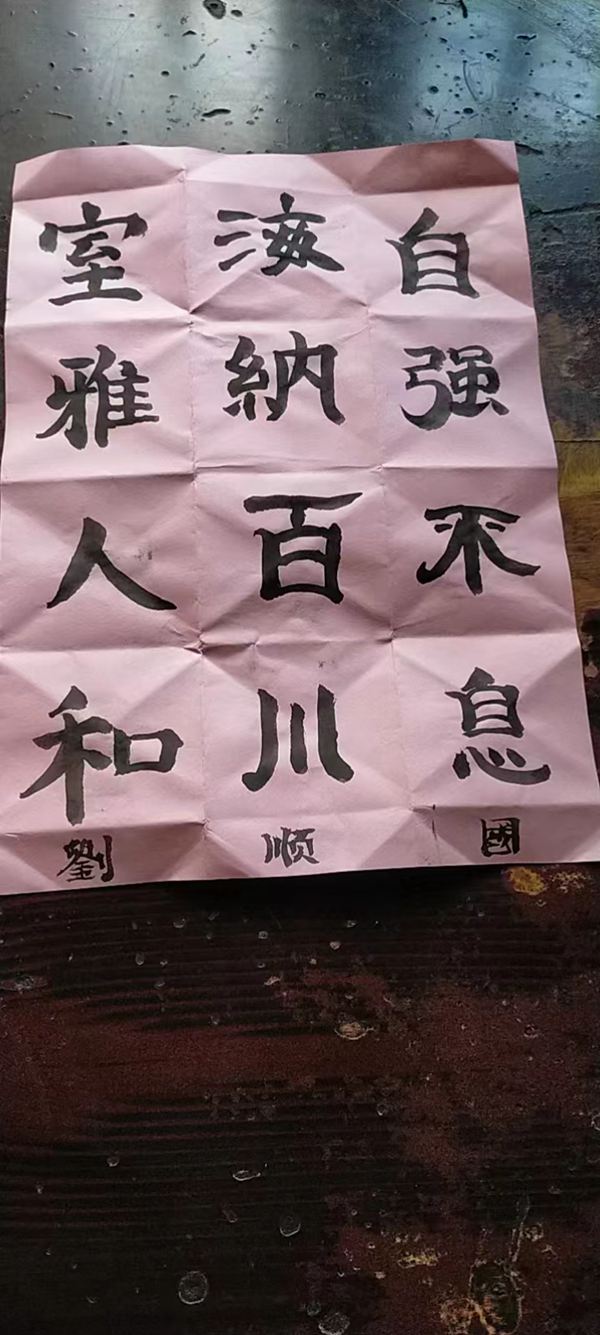 自强不息
海納百川
室雅人和
劉顺國